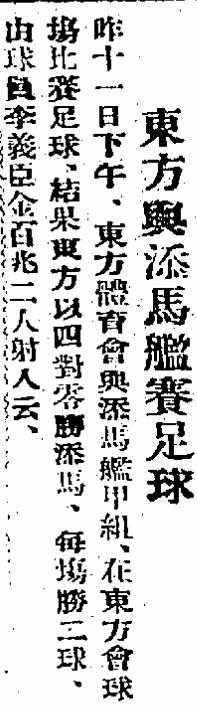 東方與添馬艦賽足球
昨十一日下午、東方體育會與添馬艦甲組、在東方會球
塲比賽足球、結果東方以四對零勝添馬、每塲勝二球、
由球員李義臣金百兆二人射入云、